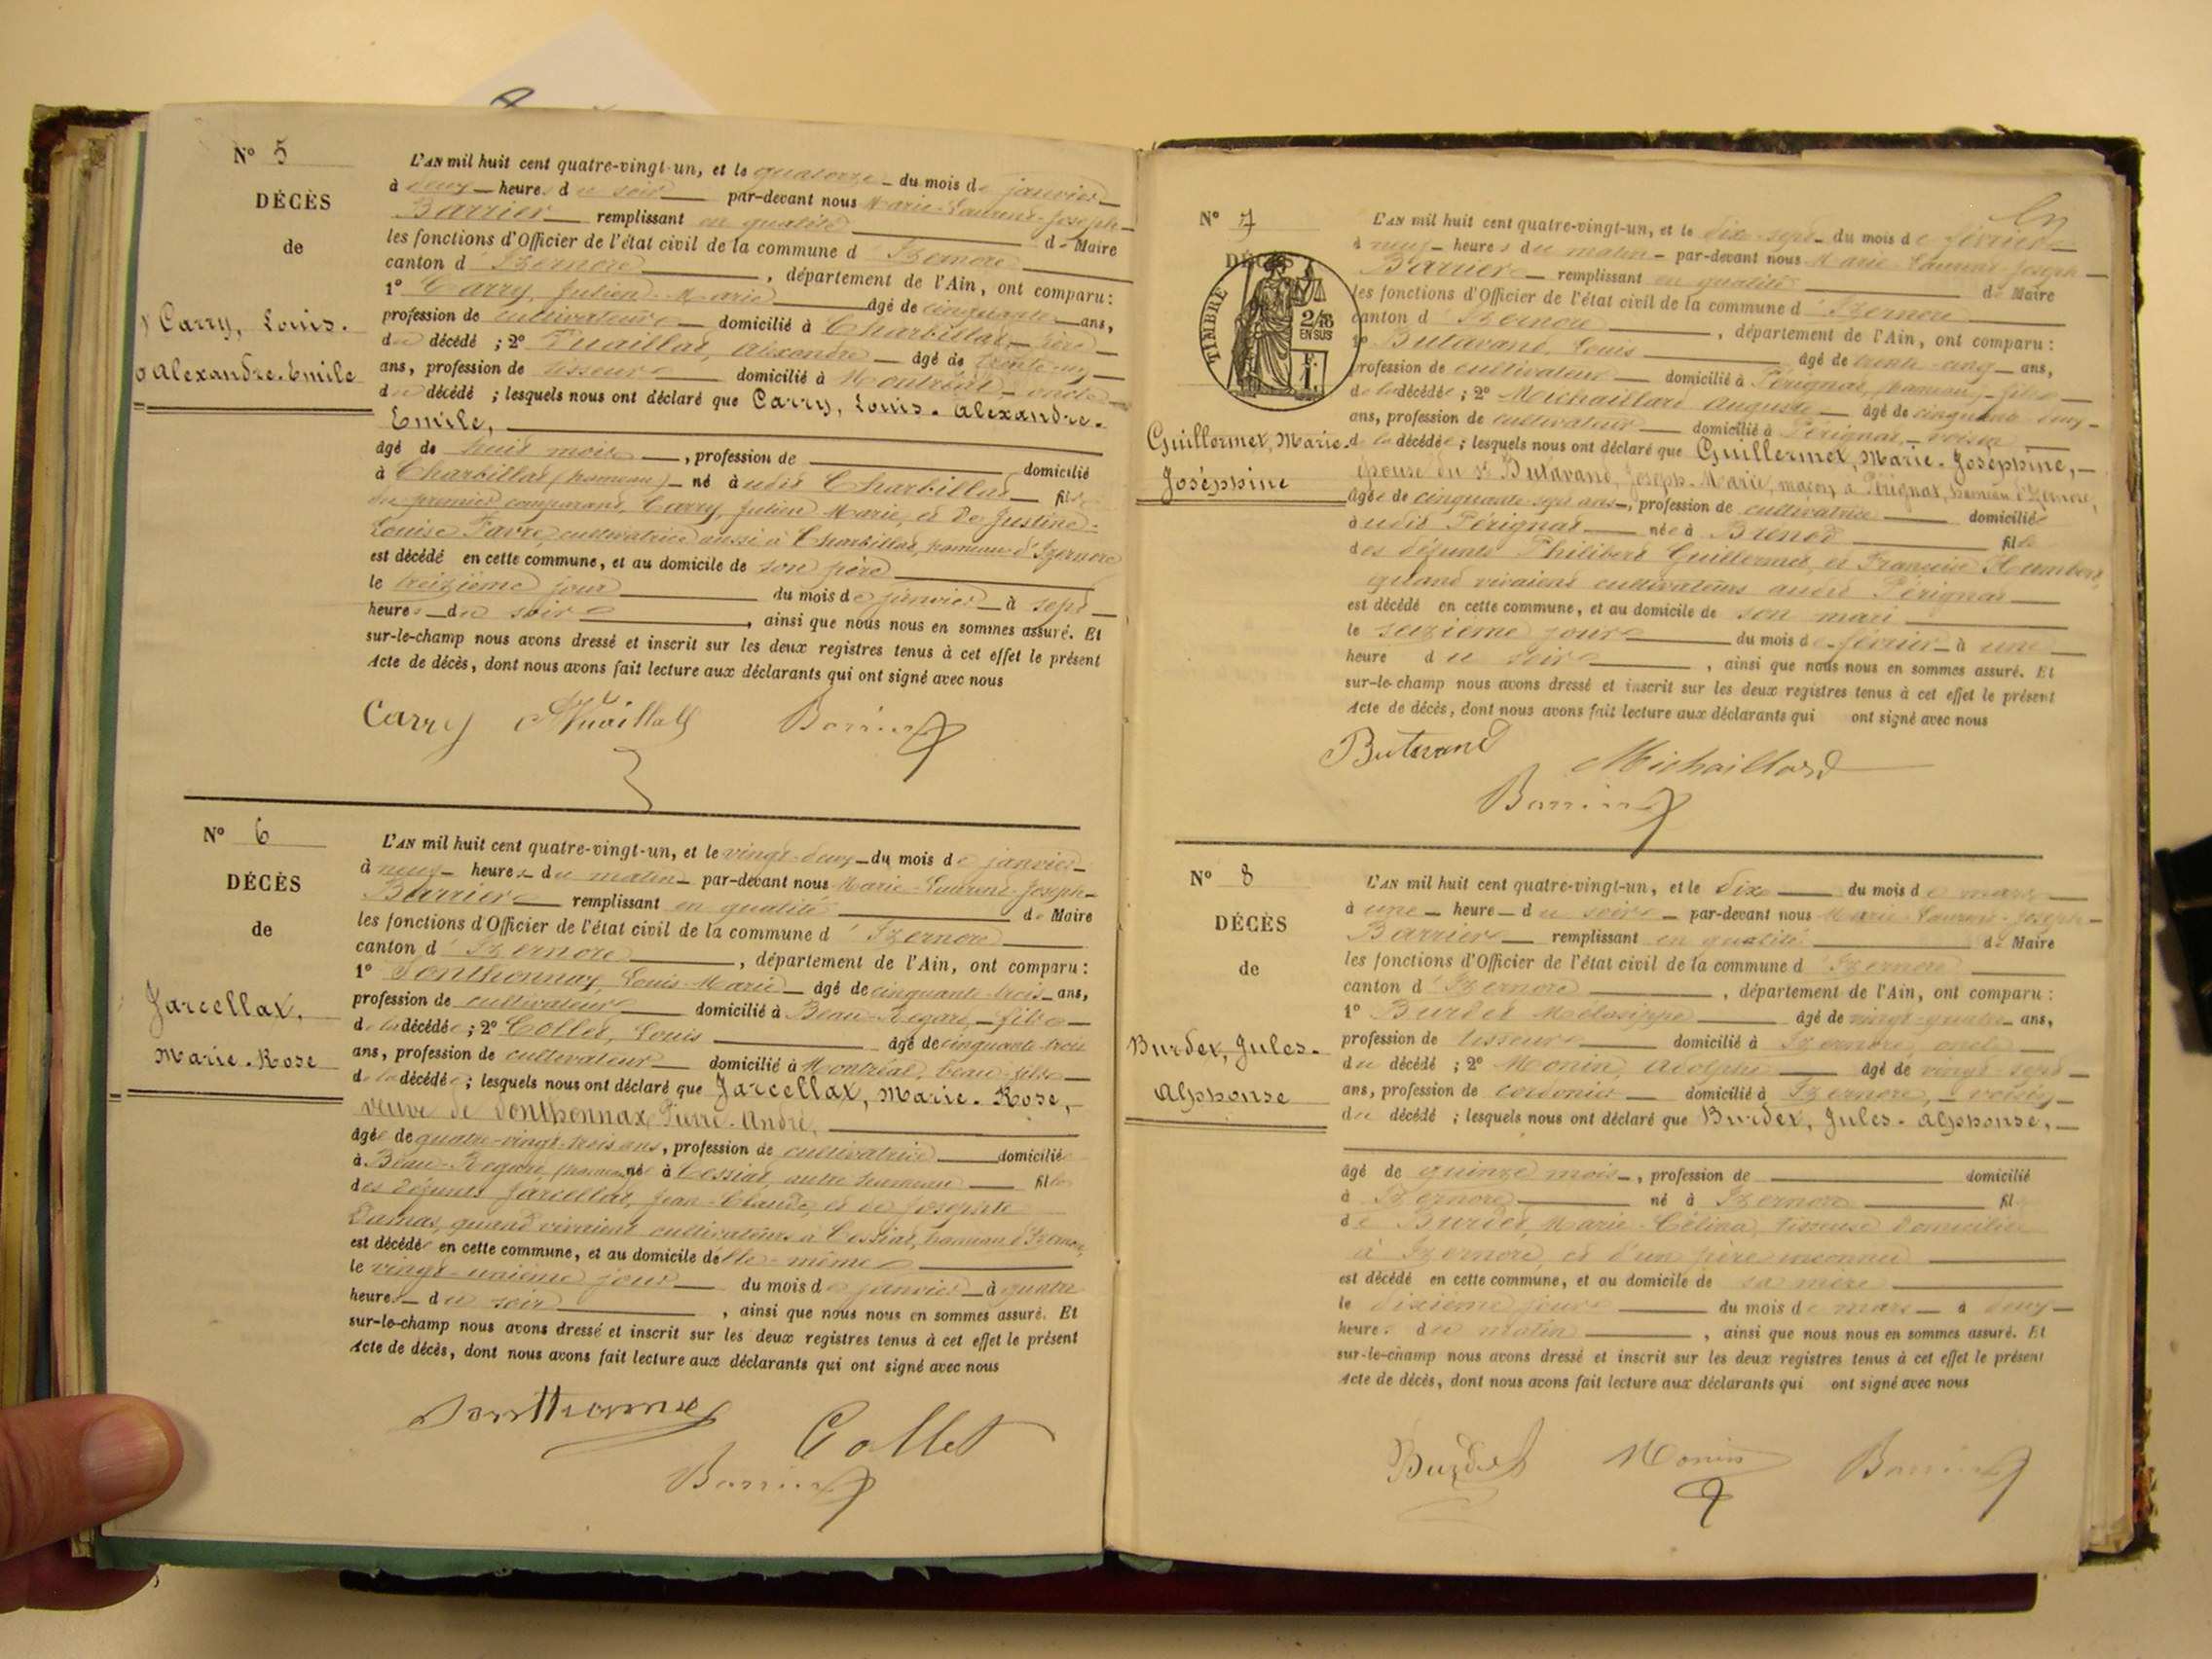 N° 5
DÉCÈS
de
Carry, Louis.
Alexandre-Emile
L'AN mil huit cent quatre-vingt-un, et le quatorze du mois de janvier
à deux heures du soir par-devant nous Marie-Laurent-Joseph
Barrier remplissant en qualité de Maire
les fonctions d'Officier de l'état civil de la commune d'Izernore
canton d'Izernore, département de l'Ain, ont comparu:
1° Carry, Julien-Marie âgé de cinquante ans,
profession de cultivateur domicilié à Charbillat, père
du décédé ; 2° Tuaillat, Alexandre âgé de trente-un
ans, profession de tisseur domicilié à Montréal, oncle
du décédé ; lesquels nous ont déclaré que Carry, Louis-Alexandre-
Emile,
âgé de huit mois, profession de domicilié
à Charbillat (hameau) né audit Charbillat fils
du premier comparant, Carry, Julien Marie, et de Justine-
Louise Favre, cultivatrice aussi à Charbillat, hameau d'Izernore
est décédé en cette commune, et au domicile de son père
le treizième jour du mois de janvier à sept
heures du soir, ainsi que nous nous en sommes assuré. Et
sur-le-champ nous avons dressé et inscrit sur les deux registres tenus à cet effet le présent
Acte de décès, dont nous avons fait lecture aux déclarants qui ont signé avec nous
Carry Barrier
N° 6
DÉCÈS
de
Jarcellat,
Marie-Rose
L'AN mil huit cent quatre-vingt-un, et le vingt-deux du mois de janvier
à neuf heures du matin par-devant nous Marie-Laurent-Joseph
Barrier remplissant en qualité de Maire
les fonctions d'Officier de l'état civil de la commune d'Izernore
canton d'Izernore, département de l'Ain, ont comparu:
1° Donthonnax, Louis-Marie âgé de cinquante-trois ans,
profession de cultivateur domicilié à Beau-Regard, fils
de la décédée ; 2° Collet, Louis âgé de cinquante-trois
ans, profession de cultivateur domicilié à Montréal, beau-fils
de la décédée ; lesquels nous ont déclaré que Jarcellat, Marie-Rose,
veuve de Donthonnax Pierre-André,
âgée de quatre-vingt-trois ans, profession de cultivatrice domiciliée
à Beau-Regard, hameau née à Cessiat, autre hameau fille
des défunts Jarcellat, Jean-Claude, et de Josephte
Damas, quand vivaient cultivateurs à Cessiat, hameau d'Izernore
est décédée en cette commune, et au domicile d'elle-même
le vingt-unième jour du mois de janvier à quatre
heures du soir, ainsi que nous nous en sommes assuré. Et
sur-le-champ nous avons dressé et inscrit sur les deux registres tenus à cet effet le présent
Acte de décès, dont nous avons fait lecture aux déclarants qui ont signé avec nous
Donthonnax Collet
Barrier
N° 7
DÉCÈS
TIMBRE
2/10
EN SUS
F.
1.
Guillermet, Marie-
Joséphine
L'AN mil huit cent quatre-vingt-un, et le dix-sept du mois de février
à neuf heures du matin par-devant nous Marie-Laurent-Joseph
Barrier remplissant en qualité de Maire
les fonctions d'Officier de l'état civil de la commune d'Izernore
canton d'Izernore, département de l'Ain, ont comparu:
1° Butavand, Louis âgé de trente-cinq ans,
profession de cultivateur domicilié à Pérignat, hameau, fils
de la décédée ; 2° Michaillard Auguste âgé de cinquante-deux
ans, profession de cultivateur domicilié à Pérignat, voisin
de la décédée ; lesquels nous ont déclaré que Guillermet, Marie-Joséphine,
épouse du sr Butavand, Joseph-Marie, maçon à Pérignat, hameau d'Izernore,
âgée de cinquante-sept ans, profession de cultivatrice domiciliée
audit Pérignat née à Brénod fille
des défunts Philibert Guillermet, et Françoise Humbert
quand vivaient cultivateurs audit Pérignat
est décédé en cette commune, et au domicile de son mari
le seizième jour du mois de février à une
heure du soir, ainsi que nous nous en sommes assuré. Et
sur-le-champ nous avons dressé et inscrit sur les deux registres tenus à cet effet le présent
Acte de décès, dont nous avons fait lecture aux déclarants qui ont signé avec nous
Butavand Michaillard
Barrier
N° 8
DÉCÈS
de
Burdet, Jules-
Alphonse
L'AN mil huit cent quatre-vingt-un, et le dix du mois de mars
à une heure du soir par-devant nous Marie-Laurent-Joseph
Barrier remplissant en qualité de Maire
les fonctions d'Officier de l'état civil de la commune d'Izernore
canton d'Izernore, département de l'Ain, ont comparu:
1° Burdet Mélasippe âgé de vingt-quatre ans,
profession de tisseur domicilié à Izernore, oncle
du décédé ; 2° Monin, Adolphe âgé de vingt-sept
ans, profession de cordonnier domicilié à Izernore, voisin
du décédé ; lesquels nous ont déclaré que Burdet, Jules-Alphonse,
âgé de quinze mois, profession de domicilié
à Izernore né à Izernore fil
de Burdet, Marie-Célina, tisseuse domiciliée
à Izernore, et d'un père inconnu
est décédé en cette commune, et au domicile de sa mère
le dixième jour du mois de mars à deux
heures du matin, ainsi que nous nous en sommes assuré. Et
sur-le-champ nous avons dressé et inscrit sur les deux registres tenus à cet effet le présent
Acte de décès, dont nous avons fait lecture aux déclarants qui ont signé avec nous
Burdet Monin Barrier